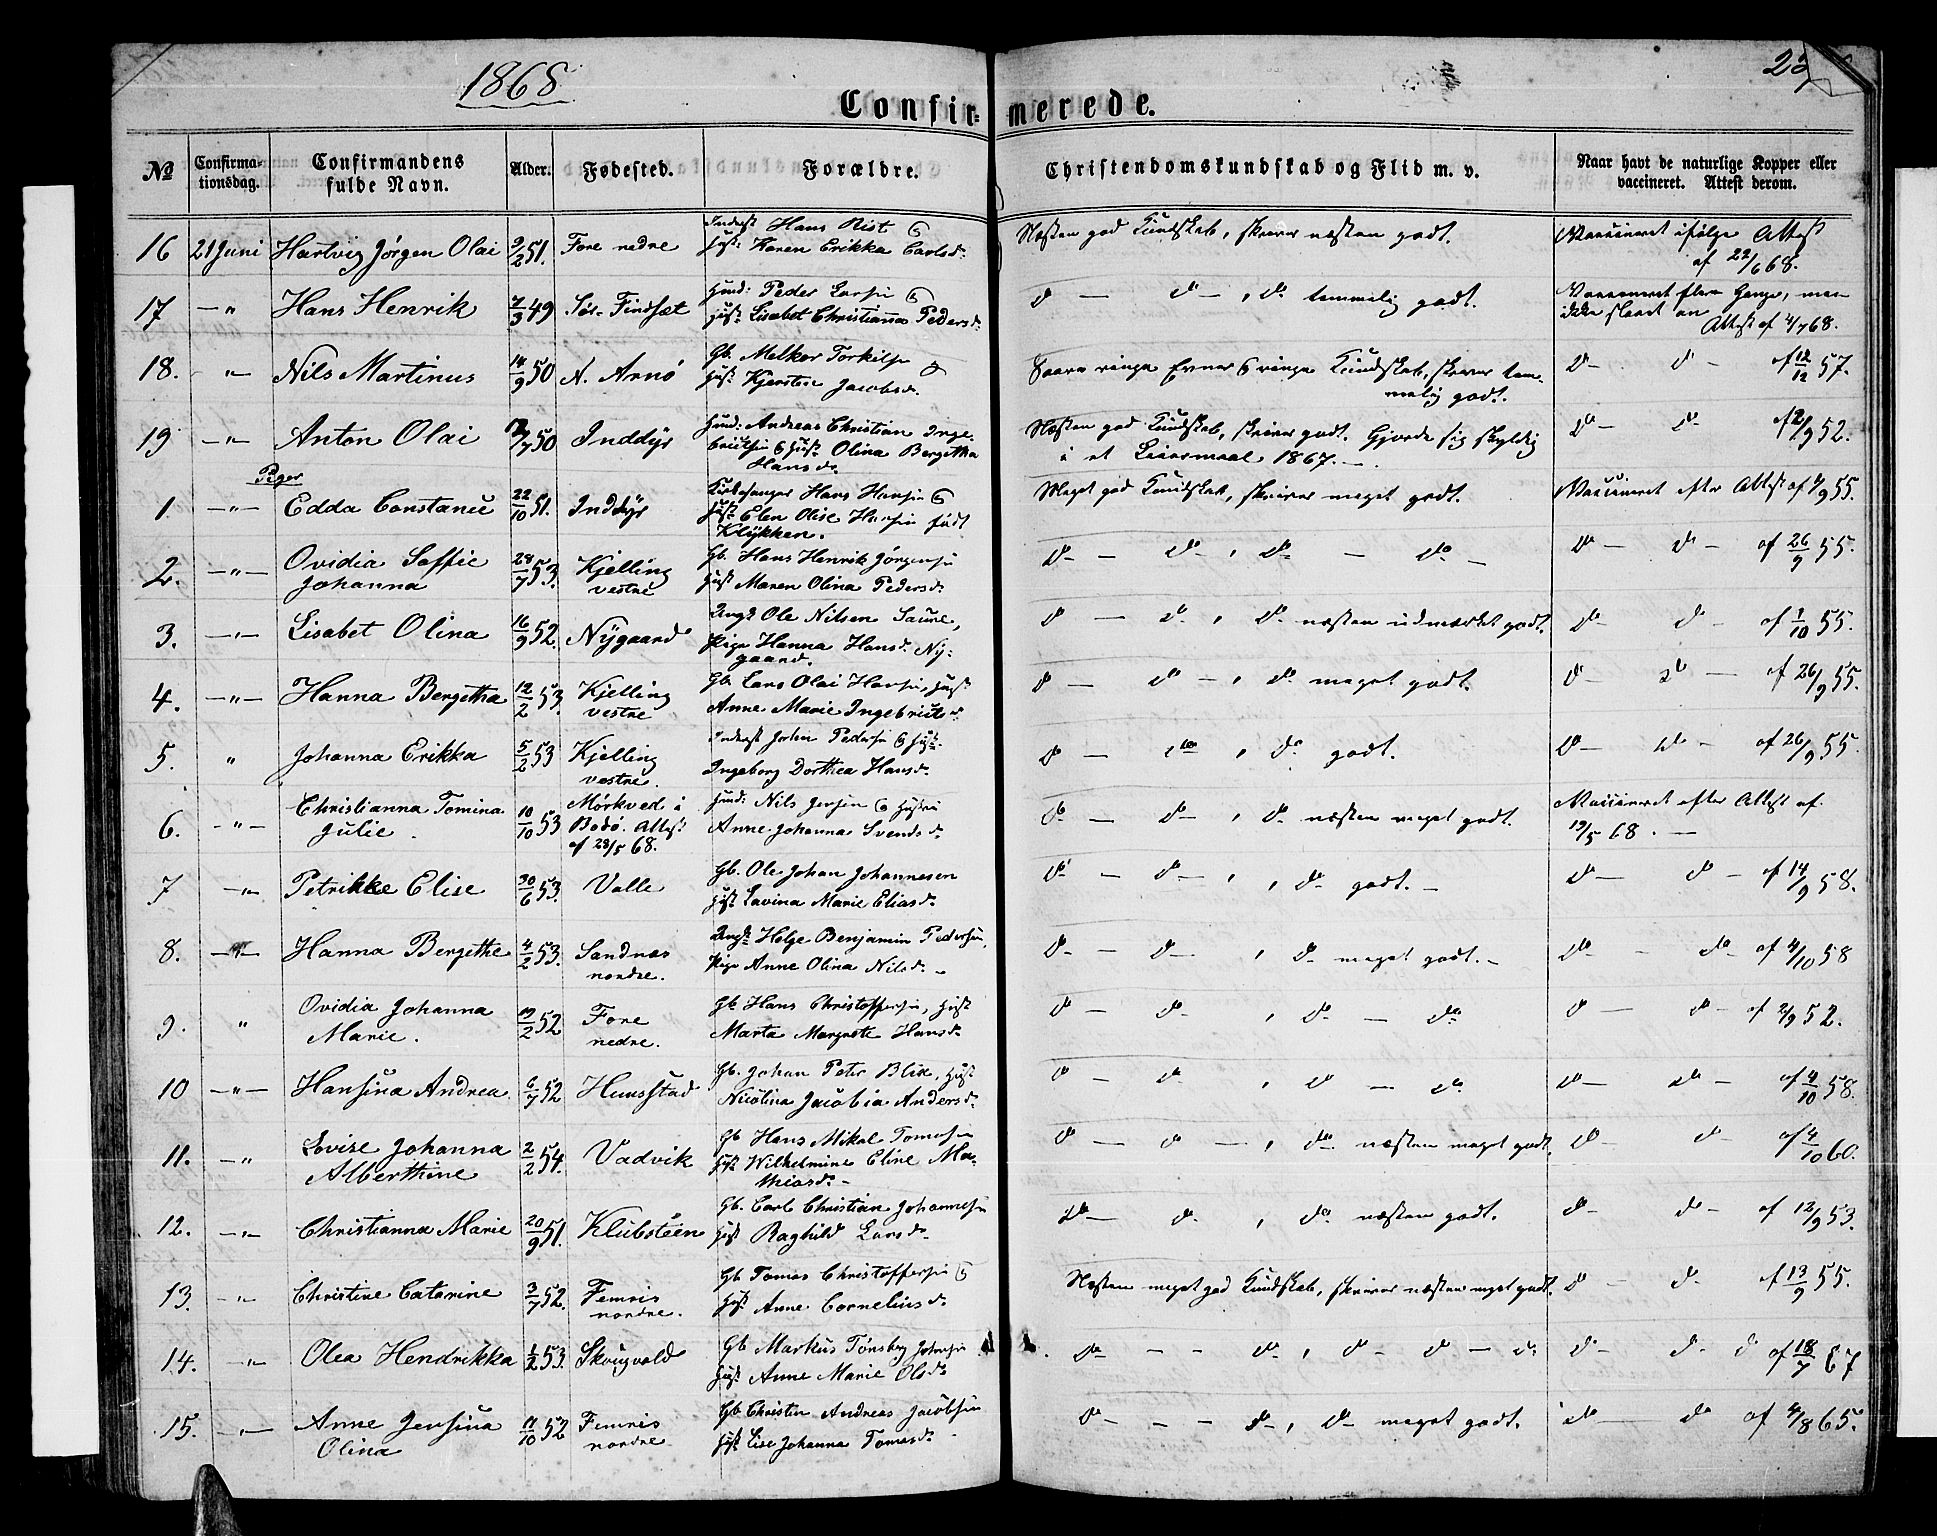 1868
Confir- merede.
No
Confirma-
tionsdag.
Confirmandens
fulde Navn.
Alder.
Fødested.
Forældre.
Christendomskundskab og Flid m. v.
Naar havt de naturlige Kopper eller
vaccineret. Attest derom.
16 21 Juni Hartvig Jørgen Olai 9/2 51. Fore nedre
Inderst Hans Rist &
Hust: Karen Erikka Carlsd.
Næsten god Kundskab, skriver næsten godt.
Vaccineret ifølge Attest
af 22/6 68.
17 —"— Hans Henrik 7/3 49 Sør-Findsæt
Huusd: Peder Larsen &
Hust: Lisabet Christianna Pedersd.
do — do —, do temmelig godt.
Vaccineret flere Gange, men
ikke slaaet an
Attest af 4/7 68.
18. " Nils Martinus 14/9 50 N. Arnø
Gb. Melkor Torkilsen &
Hust: Kjerstine Jacobsd.
Svare ringe Evner & ringe Kundskab, skriver tem-
melig godt.
do — do — af 12/12 57.
19 —"— Anton Olai 7/7 50 Inddyr
Huusd: Andreas Christian Inge-
brictsen & Hust: Olina Bergitha
Hansd.
Næsten god Kundskab, skriver godt. Gjorde sig skyldig
i et Leiermaal 1867. —
do — do af 2/9 52.
Piger
1. —"— Edda Constance 22/10 51. Inddyr
Kirkesanger Hans Hansen &
Hust: Elen Olise Hansen født
Klykken.
Meget god Kundskab, skriver meget godt.
Vaccineret efter Attest af 4/9 55.
2. —"— Ovidia Soffie
Johanna
28/7 53. Kjelling
vestre
Gb. Hans Henrik Jørgensen
Hust Maren Olina Pedersd.
do — do —, do — do —
do — do — af 26/9 55.
3. —"— Lisabet Olina 16/9 52. Nygaard
Ungk Ole Nilsen Saure,
Pige Hanna Hansd. Ny-
gaard.
do — do —, do næsten udmærket godt.
do — do — af 1/10 55.
4. —"— Hanna Bergetha 12/2 53. Kjelling
vestre
Gb. Lars Olai Hansen, Hust
Anne Marie Ingebrictsd.
do — do —, do meget godt.
do — do — af 26/9 55.
5. " Johanna Erikka 5/2 53 Kjelling
vestre.
Inderst Johan Pedersen & Hust.
Ingeborg Dorthea Hansd.
do — do, do godt.
do — do — af 26/9 55.
6. —"— Christianna Tomina
Julie.
10/10 53 Mørkved i
Bodø. Attest
af 28/5 68.
Huusd: Nils Jensen & Hustru
Anne Johanna Svendsd.
do — do —, do næsten meget godt.
Vaccineret efter Attest af
19/5 68. —
7 —"— Petrikke Elise 30/6 53. Valle
Gb. Ole Johan Johannesen
Hust Lavina Marie Eliasd.
do — do —, do godt. —
do — do — af 14/9 58.
8. —"— Hanna Bergethe 4/2 53. Sandnæs
nordre.
Ungk Helge Benjamin Pedersen,
Pige Anne Olina Nilsd. —
do — do —, do meget godt. —
do — do — af 4/10 58
9. " Ovidia Johanna
Marie.
19/2 52 Fore
nedre.
Gb Hans Christoffersen, Hust
Marta Margrete Hansd.
do — do —, do — do
do — do — af 2/9 52.
10 —"— Hansina Andrea 6/7 52 Hunstad
Gb. Johan Peter Blix, Hust
Nicolina Jacobia Andersd.
do — do, do — do
do — do — af 4/10 58.
11. —" Lovise Johanna
Alberthine
2/2 54. Vadvik
Gb Hans Mikal Tomesen
Hust Wilhelmine Eline Ma-
thiasd. —
do — do —, do næsten meget godt.
do — do — af 4/10 60.
12. —"— Christianna Marie 20/9 51. Klubsteen
Gb. Carl Christian Johannesen
Hust Raghild Larsd.
do — do, do næsten godt.
do — do — af 12/9 53.
13. —"— Christine Catarine 3/7 52. Femris
nordre.
Gb Tomas Christoffersen &
Hust. Anne Corneliusd.
Næsten meget god Kundskab, skriver næsten meget godt.
do — do — af 13/9 55.
14. —"— Olea Hendrikka 1/2 53. Skougvold
Gb Markus Tønsberg Johnsen
Hust Anne Marie Olsd.
do — — do, do — do — do
do — do do af 18/7 67
15. —"— Anne Jensina
Olina
11/10 52 Femris
nordre.
Gb Christen Andreas Jacobsen
Hust Lise Johanna Tomasd. —
do — — — do —, do meget godt.
do — do af 4/8 65.